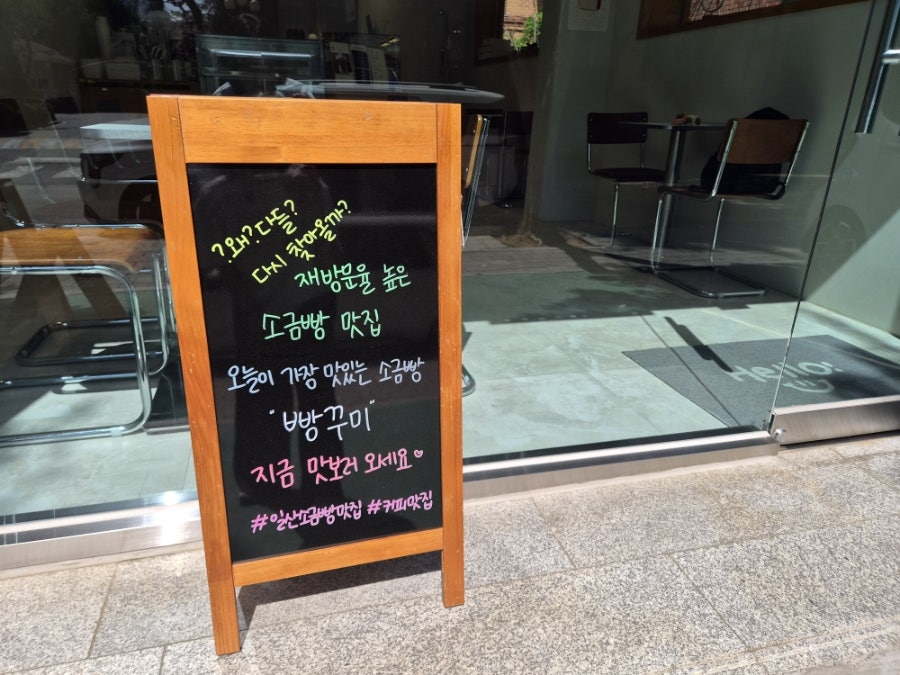 ?왜?다들?
다시 찾아올까?
재방문율 높은
소금빵 맛집
오늘이 가장 맛있는 소금빵
"빵꾸미"
지금 맛보러 와세요♡
#일산소금빵맛집 #커피맛집
Hello!